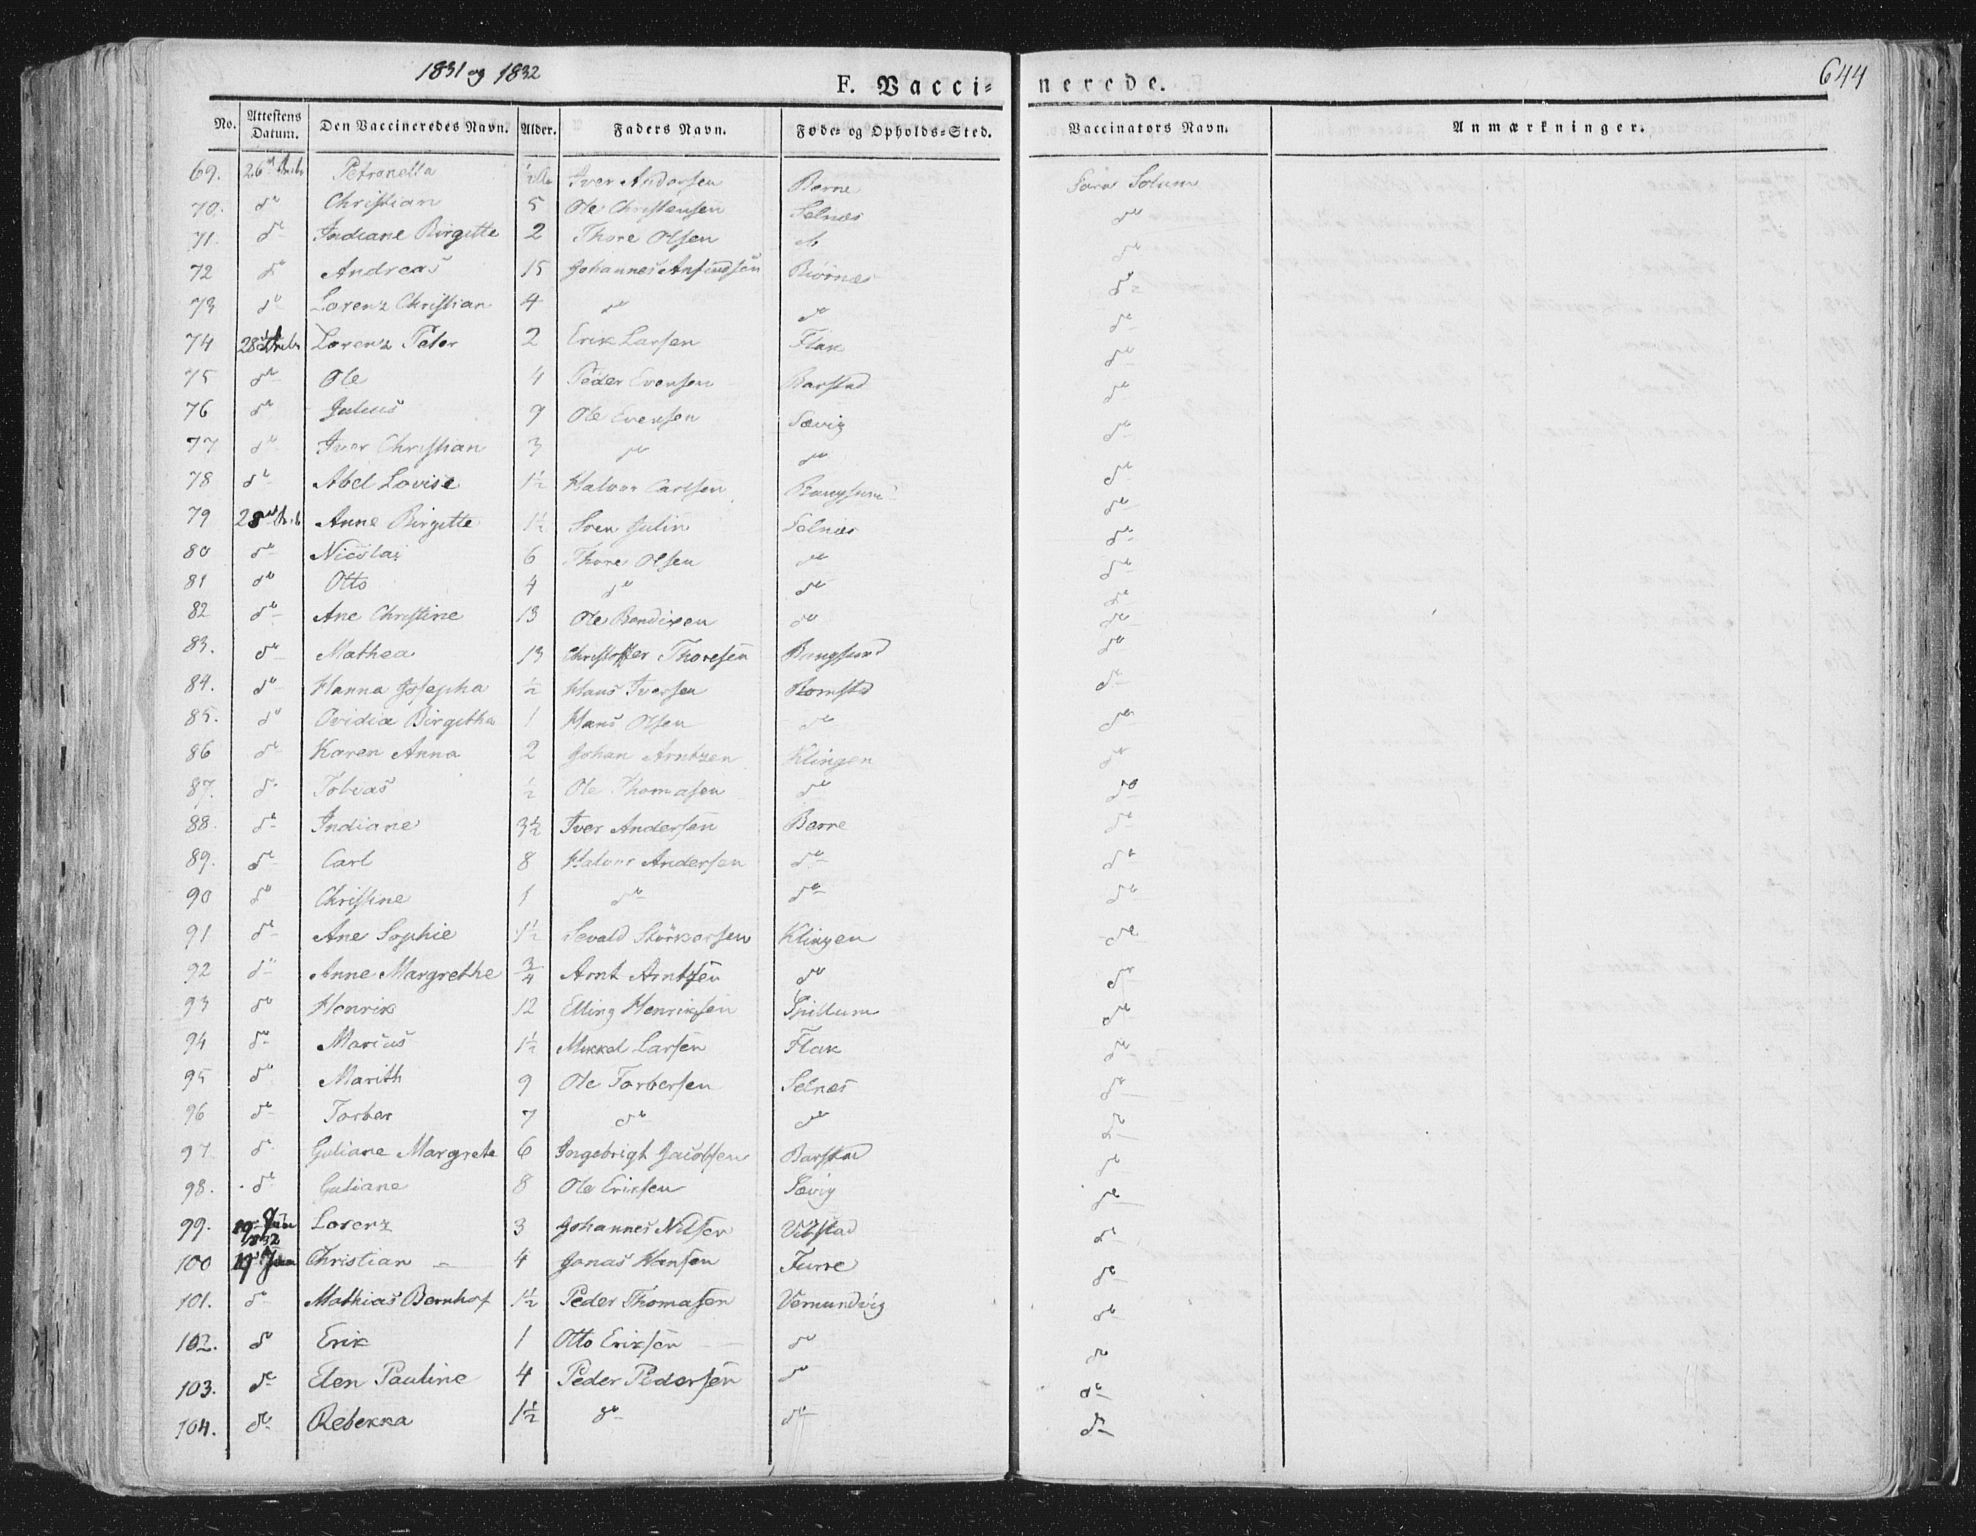 1831 og 1832
F. Vaccinerede.
644
No. Attestens Datum. Den Vaccineredes Navn. Alder. Faders Navn. Føde- og Opholds-Sted. Vaccinators Navn. Anmærkninger.
69. 26 Petronella ½ Iver Andersen Berre Sara Solum
70. do Christian 5 Ole Christensen Selnæs do
71. do Indiane Birgitte 2 Thore Olsen do do
72 do Andreas 15 Johannes Anfindsen Biörnæs do
73 do Lorenz Christian 4 do do do
74 28 Lorenz Peter 2 Erik Larsen Flak do
75 do Ole 4 Peder Evensen Barstad do
76 do Julius 9 Ole Evensen Sævig do
77 do Iver Christian 3 do do do
78 do Abel Lovise 1½ Halvor Carlsen Bangsund do
79 28 Anne Birgitte 1½ Sren Julin Selnæs do
80 do Nicolai 6 Thore Olsen do do
81 do Otto 4 do do do
82 do Ane Christine 13 Ole Bendixen do do
83. do Mathea 13 Christoffer Thoresen Bangsund do
84. do Hanna Josepha ½ Hans Iversen Romstd do
85. do Ovidia Birgitha 1 Hans Olsen do do
86 do Karen Anna 2 Johan Arntzen Klingen do
87. do Tobias ½ Ole Thomasen do do
88. do Indiane 3½ Iver Andersen Berre do
89. do Carl 8 Halvor Andersen do do
90 do Christine 1 do do do
91 do Ane Sophie 1½ Sevald Störkersen Klingen do
92 do Anne Margrethe ¾ Arnt Arntzen do do
93 do Henrik 12 Elling Henriksen Spillum do
94 do Marius 1½ Mikkel Larsen Flak do
95 do Marith 9 Ole Torbersen Selnæs do
96 do Torber 7 do do do
97 do Guliane Margrete 6 Ingebrigt Jacobsen Barstad do
98. do Guliane 8 Ole Eriksen Sævig do
99. 19 Jan 1832 Lorenz 3 Johannes Nilsen Vibstad do
100 19 Jan Christian 4 Jonas Hansen Furre do
101. do Mathias Bernhof 1½ Peder Thomasen Vemundvig do
102. do Erik 1 Otto Eriksen do do
103. do Elen Pauline 4 Peder Pedersen do do
104. do Rebekka 1½ do do do